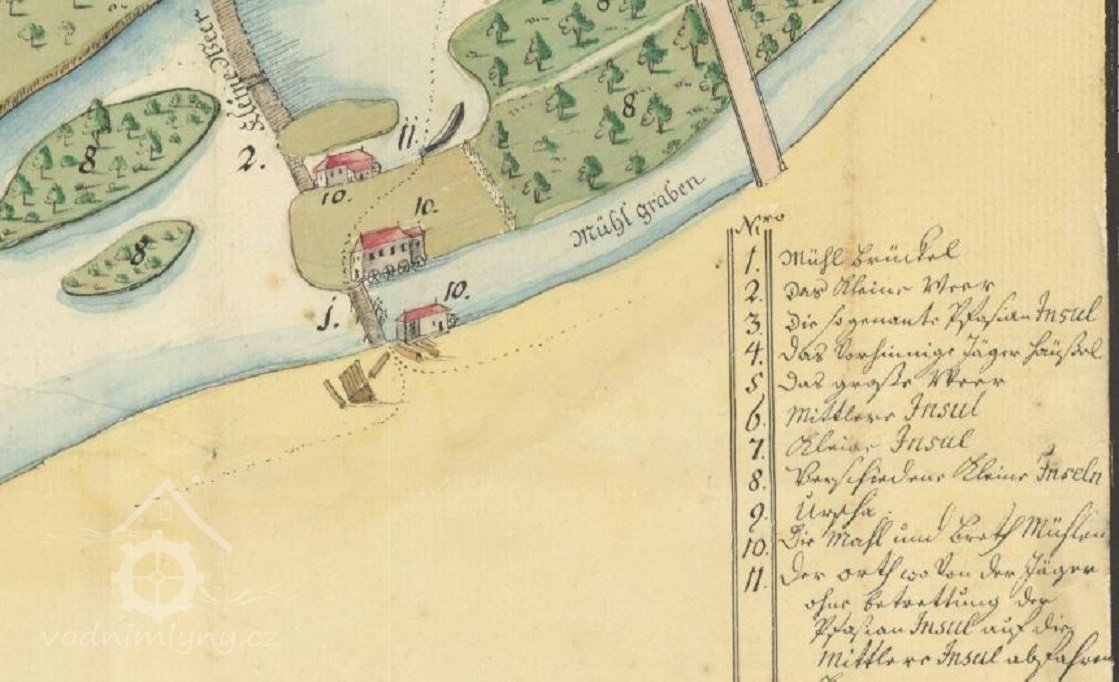 8
Kleine Weer
2.
8
8
8
11.
10.
10.
Mühl graben
1.
10.
Nro
1. Mühl brückel
2. Das Kleine Weer
3. Die sogenante Pfasian Insul
4. Das Vorhinnige Jäger häüßel
5 Das große Weer
6. Mittlere Insul
7. Kleine Insul
8. Verschiedene Kleine Inseln
9. Urscha
10. Die Mahl und breth Mühlen
11. Der orth wo Von der Jäger
ohne betrettung der
Pfasian Insul auf die
Mittlere Insul abfahren
vodnimlyny.cz